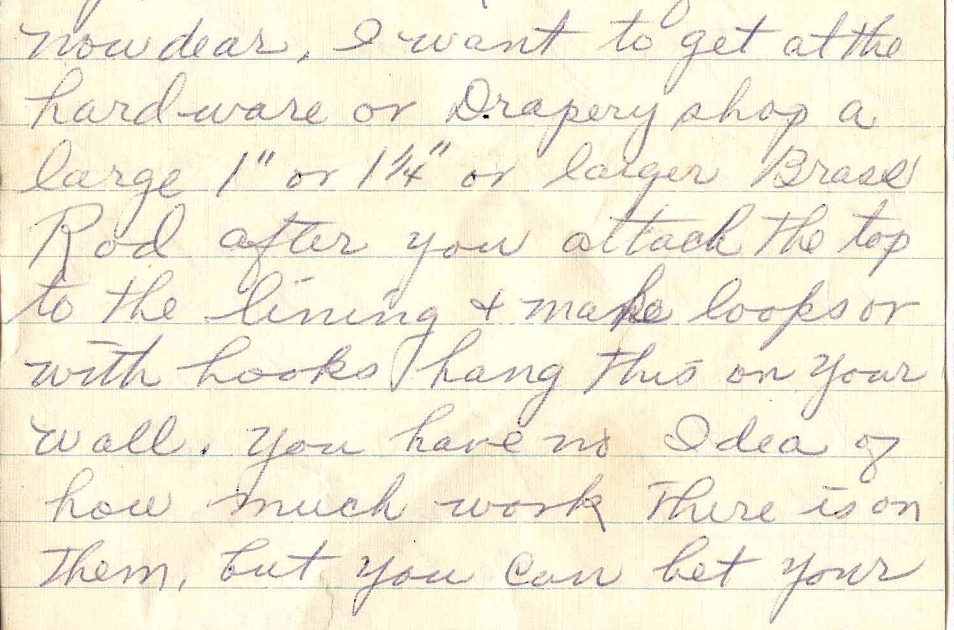 now dear, I want to get at the
hardware or Drapery shop a
large 1" or 1 1/4" or larger Brass
Rod after you attach the top
to the lining & make loops or
with hooks hang this on your
wall. You have no Idea of
how much work there is on
them, but you can bet your